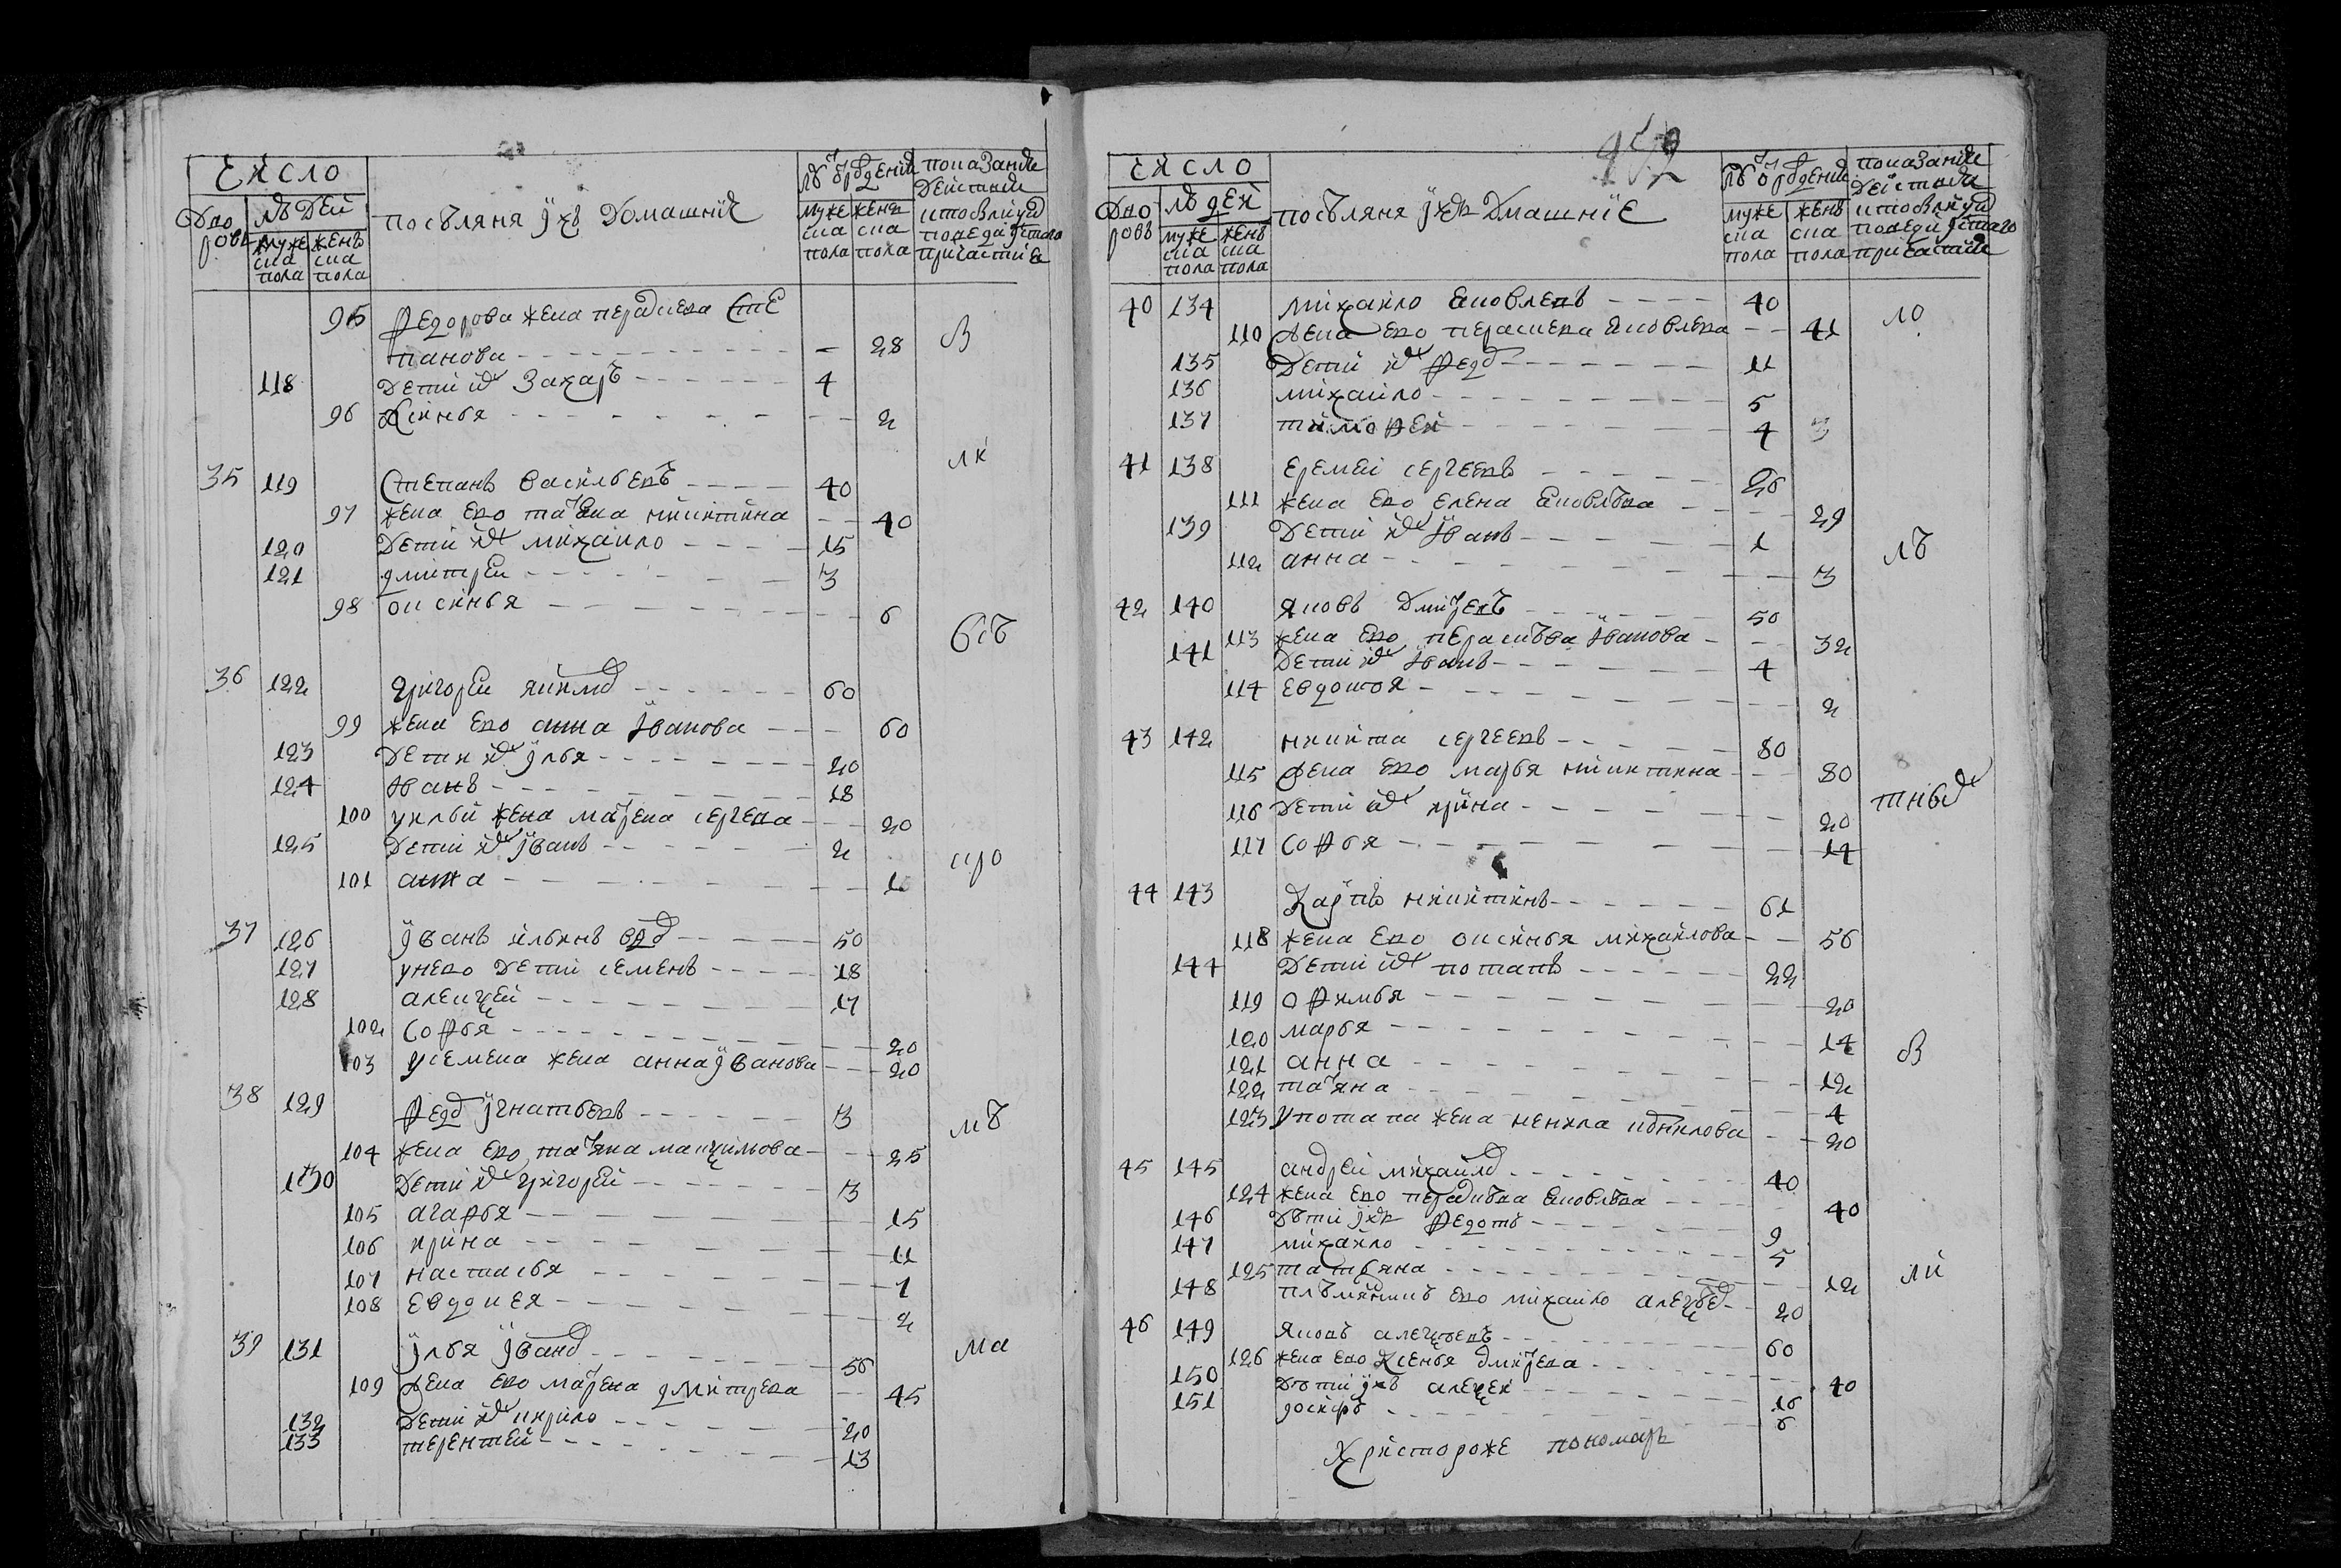 Число
Дворовъ
людей
мужеска пола
женска пола
поселяня ихъ домашние
летъ от рождения
мужеска пола
женска пола
показание действа
кто был у исповеди и святаго причастия
95 Федорова жена параскева Сте
панова - - - 28
118 Дети их Захаръ - - - 4
96 Ксинья - - - 2
35 119 Степанъ Васильевъ - - - 40
97 жена ево татьяна никитина - - 40
120 Дети их михаило - - - 15
121 дмитреи - - - 3
98 оксинья - - - 6
36 122 григореи якимов - - - 60
99 жена ево анна иванова - - - 60
123 Дети их илья - - - 20
124 иванъ - - - 18
100 у ильи жена матрена сергева - - 20
125 Дети их иванъ - - - 2
101 анна - - - 1
37 126 иванъ ильинъ вдов - - - 50
127 у нево дети семенъ - - - 18
128 алексей - - - 17
102 софья - - - 20
103 у семена жена анна иванова - - - 20
38 129 Федор игнатьевъ - - - 3
104 жена ево татьяна максимова - - 25
130 Дети их григорей - - - 3
105 агафья - - - 15
106 ирина - - - 11
107 настасья - - - 7
108 евдокея - - - 2
39 131 илья иванов - - - 56
109 жена ево матрена дмитрева - - 45
132 Дети их кирило - - - 20
133 терентей - - - 13
Число
Дворовъ
людей
мужеска пола
женска пола
поселяня ихъ дмашние
летъ от рождения
мужеска пола
женска пола
показание действа
кто был у исповеди и святаго причастия
40 134 михаило яковлевъ - - - 40
110 жена ево пераскева яковлева - - 41
135 Дети их федор - - - 11
136 михаило - - - 5
137 тимофей - - - 4
41 138 еремеи сергеевъ - - - 26
111 жена ево елена яковлева - - 29
139 Дети их иванъ - - - 1
112 анна - - - 3
42 140 яковъ дмитревъ - - - 50
113 жена ево перасковя иванова - - - 32
141 Дети их иванъ - - - 4
114 евдотоя - - - 2
43 142 никита сергеевъ - - - 80
115 жена ево марья никитина - - - 80
116 Дети их ирина - - - 20
117 софья - - - 14
44 143 карпъ никитинъ - - - 61
118 жена ево оксинья михаилова - - 56
144 Дети их потапъ - - - 22
119 офимья - - - 20
120 марья - - - 14
121 анна - - - 12
122 татяна - - - 4
123 у потапа жена ненила - - 20
45 145 андреи михаилов - - - 40
124 жена ево яковлева - - - 40
146 дети ихъ федотъ - - - 9
147 михаило - - - 5
125 татьяна - - - 12
148 племянникъ ево михаило алексеев - - 20
46 149 яковъ алексеевъ - - - 60
126 жена ево ксенья дмитрева - - - 40
150 дети ихъ алексеи - - - 16
151 осифъ - - - 6
Христороже пономарь